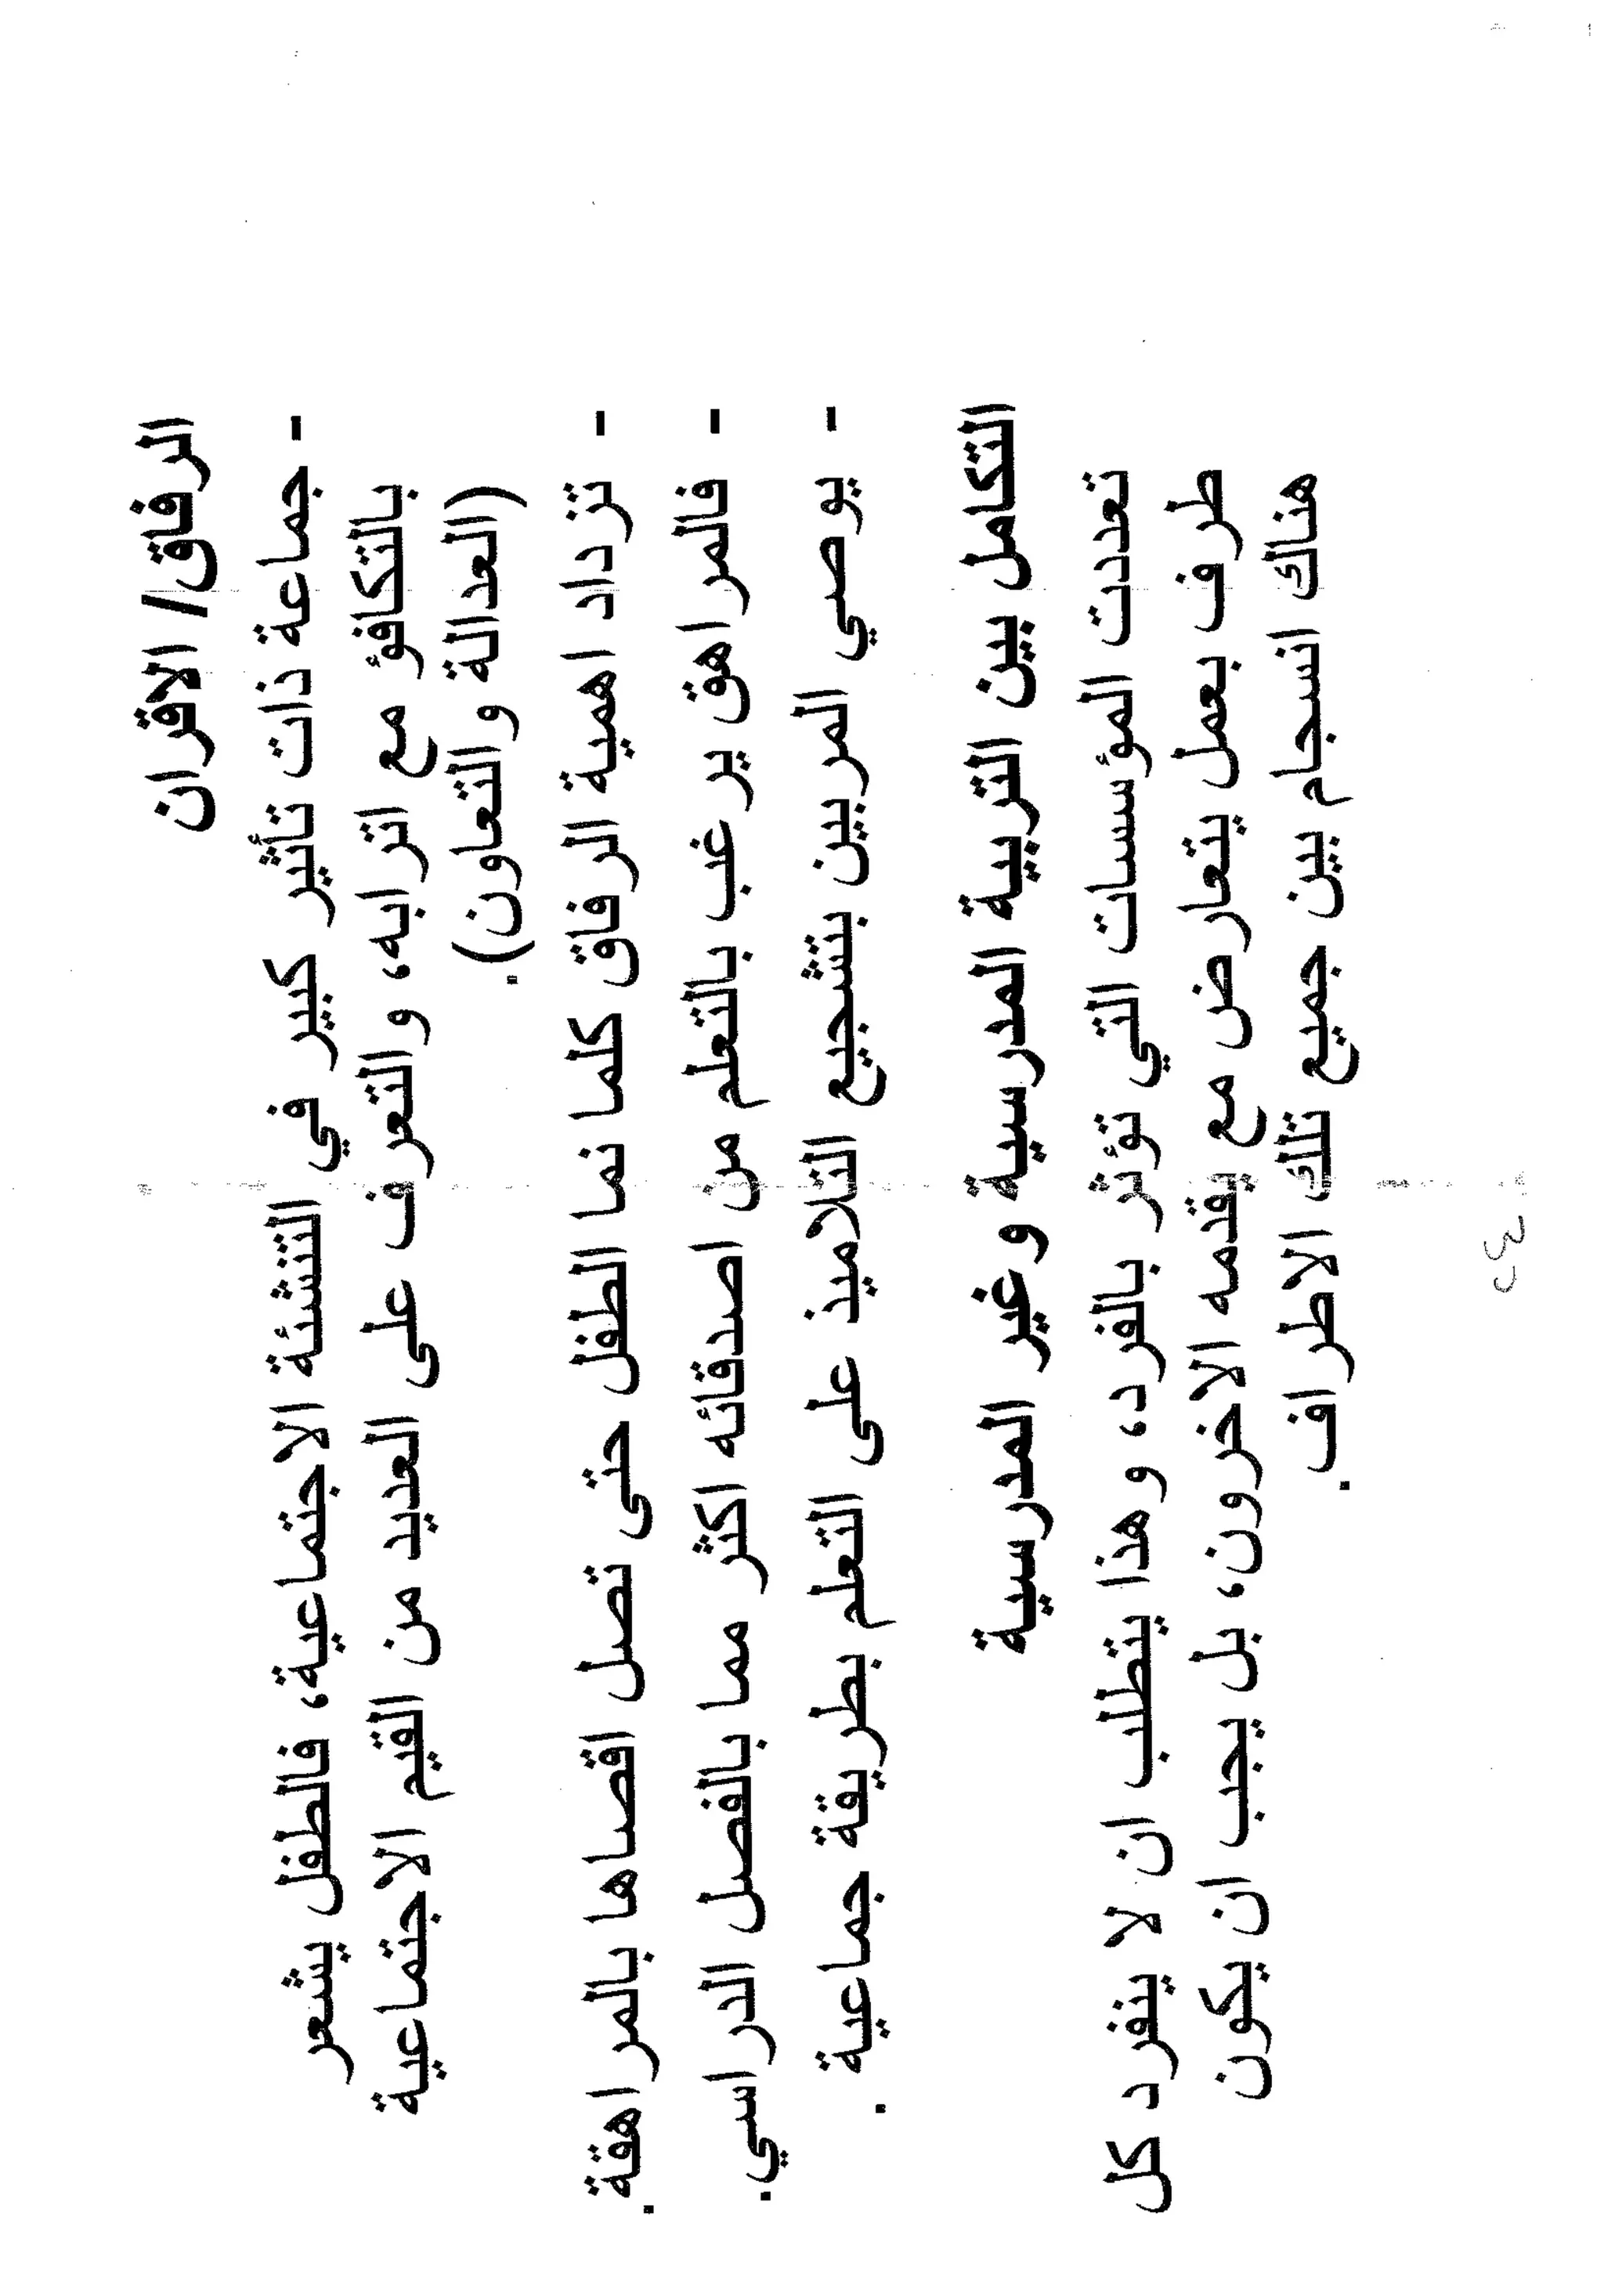 الرفاق/ الاقران
- جماعة ذات تأثير كبير في التنشئة الاجتماعية، فالطفل يشعر
بالتكافؤ مع اترابه، والتعرف على العديد من القيم الاجتماعية
(العدالة والتعاون).
- تزداد اهمية الرفاق كلما نما الطفل حتى تصل اقصاها بالمراهقة.
- فالمراهق يرغب بالتعلم من اصدقائه اكثر مما بالفصل الدراسي.
- يوصي المربين بتشجيع التلاميذ على التعلم بطريقة جماعية .
التكامل بين التربية المدرسية وغير المدرسية
تعددت المؤسسات التي تؤثر بالفرد، وهذا يتطلب ان لا ينفرد كل
طرف بعمل يتعارض مع يقدمه الاخرون، بل يجب ان يكون
هناك انسجام بين جميع تلك الاطراف.